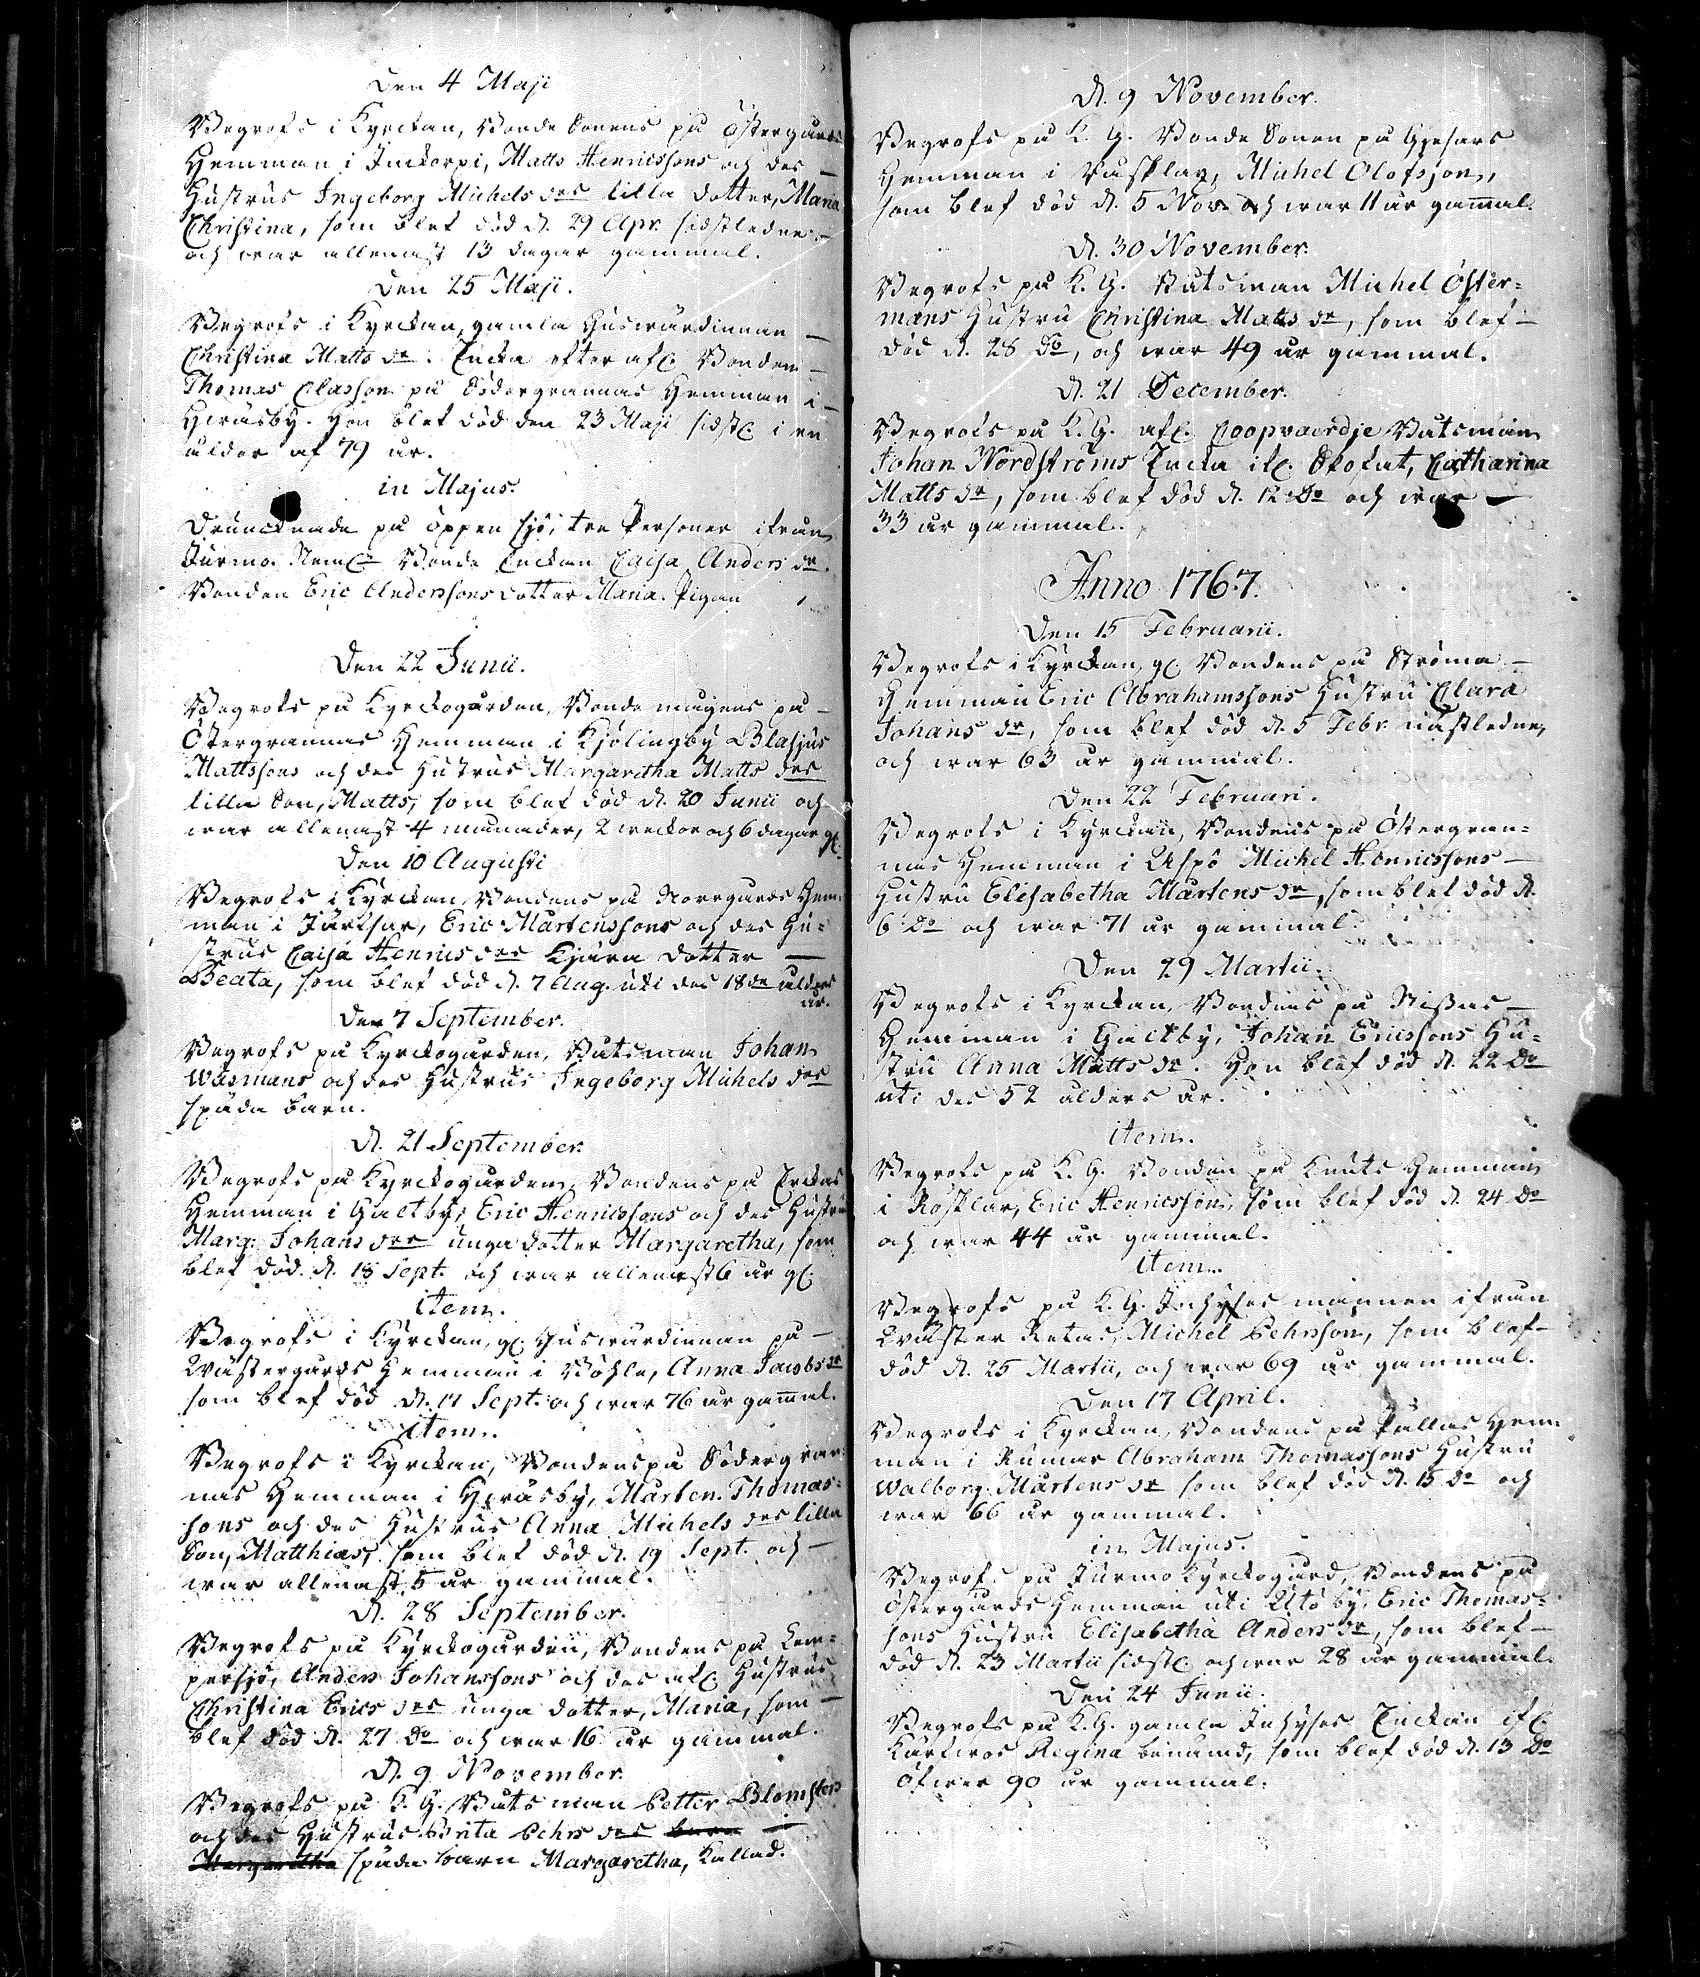 Den 4 Maji
Begrofs i Kyrckan, Bonde Sonens på Östergårds
Hemman i Jnckorpi, Matts Henricssons och des
Hustrus Ingeborg Michels drs lilla dotter, Maria
Christina, som blef död d. 29 Apr. sidstledne
och war allenast 13 dagar gammal.
Den 25 Maji.
Begrofs i Kyrckan, gamla Huswärdinnan
Christina Matts dr. Encka efter afl. Bonden
Thomas Classon på Södergrannas Hemman i
Hyräsby. Hon blef död den 23 Maji sidstl. i en
ålder af 79 år.
in Majus.
Druncknade på öppen sjö, tre Personer ifrån
Jurmo. Neml. Bonde Enckan Caisa Anders dr.
Bonden Eric Anderssons dotter Maria. Pigan
Den 22 Junii.
Begrofs på Kyrckogården, Bonde mågens på
Östergrannas Hemman i Kjölingby Blasjus
Mattssons och des Hustrus Margaretha Matts drs
lilla Son, Matts, som blef död d. 20 Junii och
war allenast 4 månader, 2 weckor och 6 dagar gl.
Den 10 Augusti
Begrofs i Kyrckan, Bondens på Norrgårds Hem-
man i Järfsar, Eric Mårtenssons och des Hu-
strus Caisa Henrics drs Kjära dotter
Beata, som blef död d. 7 Aug. uti des 18de ålders
år.
Den 7 September.
Begrofs på Kyrckogården, Båtsman Johan
Wäsmans och des Hustrus Ingeborg Michels drs
späda barn.
D. 21 September.
Begrofs på Kyrckogården, Bondens på Erckas
Hemman i Galtby, Eric Henricssons och des Hustrus
Marg: Johans drs unga dotter Margaretha, som
blef död d. 18 Sept. och war allenast 6 år gl.
item.
Begrofs i Kyrckan, gl. Huswärdinnan på
Wästergårds Hemman i Böhle, Anna Jacobs dr
som blef död d. 17 Sept. och war 76 år gamal.
item.
Begrofs i Kyrckan, Bondens på Södergran-
nas Hemman i Hyräsby, Mårten Thomas-
sons och des Hustrus Anna Michels drs lilla
Son, Matthias, som blef död d. 19 Sept. och
war allenast 5 år gammal.
D. 28 September.
Begrofs på Kyrckogården, Bondens på Lem-
persjö, Anders Johanssons och des afl. Hustrus
Christina Erics drs unga dotter, Maria, som
blef död d. 27 Do och war 16 år gammal.
D. 9 November.
Begrofs på K. G. Båtsman Petter Blomsters
och des Hustrus Brita Pehrs drs barn
Margaretha späda barn Margaretha, Kallad.
D. 9 November.
Begrofs på K. G. Bonde Sonen på Gjesars
Hemman i Rosklax, Michel Olofsson,
som blef död d. 5 Nov. och war 11 år gamal.
D. 30 November.
Begrofs på K. G. Båtsman Michel Öster-
mans Hustru Christina Matts dr, som blef
död d. 28 do, och war 49 år gammal.
D. 21 December.
Begrofs på K. G. afl. Coopvaerdje Båtsman
Johan Nordströms Encka ifr. Skofat, Catharina
Matts dr, som blef död d. 12 Do och war
33 år gammal.
Anno 1767.
Den 15 Februarii.
Begrofs i Kyrckan, gl. Bondens på Ströma
Hemman Eric Abrahamssons Hustru Clara
Johans dr, som blef död d. 5 Febr. nästledne,
och war 63 år gammal.
Den 22 Februari.
Begrofs i Kyrckan, Bondens på Östergran-
nas Hemman i Aspö Michel Henricssons
Hustru Elisabetha Mårtens dr, som blef död d.
6 Do och war 71 år gammal.
Den 29 Martii.
Begrofs i Kyrckan, Bondens på Nissas
Hemman i Galtby, Johan Ericssons Hu-
stru Anna Matts dr. Hon blef död d. 22 Do
uti des 52 ålders år.
item.
Begrofs på K. G. Bonden på Knuts Hemman
i Rosklax, Eric Henricsson, som blef död d. 24 Do
och war 44 år gammal.
item.
Begrofs på K. G. Inhyses mannen ifrån
Wäster Retas, Michel Pehrsson, som blef
död d. 25 Martii, och war 69 år gammal.
Den 17 April.
Begrofs i Kyrckan, Bondens på Pallas Hem-
man i Rumar Abraham Thomassons Hustru
Walborg Mårtens dr som blef död d. 15 Do och
war 66 år gammal.
in Majus.
Begrofs på Jurmo Kyrckogård, Bondens på
Östergårds Hemman uti Utö by, Eric Thomas-
sons Hustru Elisabetha Anders dr, som blef
död d. 23 Martii sidstl. och war 28 år gammal.
Den 24 Junii.
Begrofs på K. G. gamla Inhyses Enckan ifr.
Kärfwos Regina benämd, som blef död d. 13 Do
öfwer 90 år gammal.